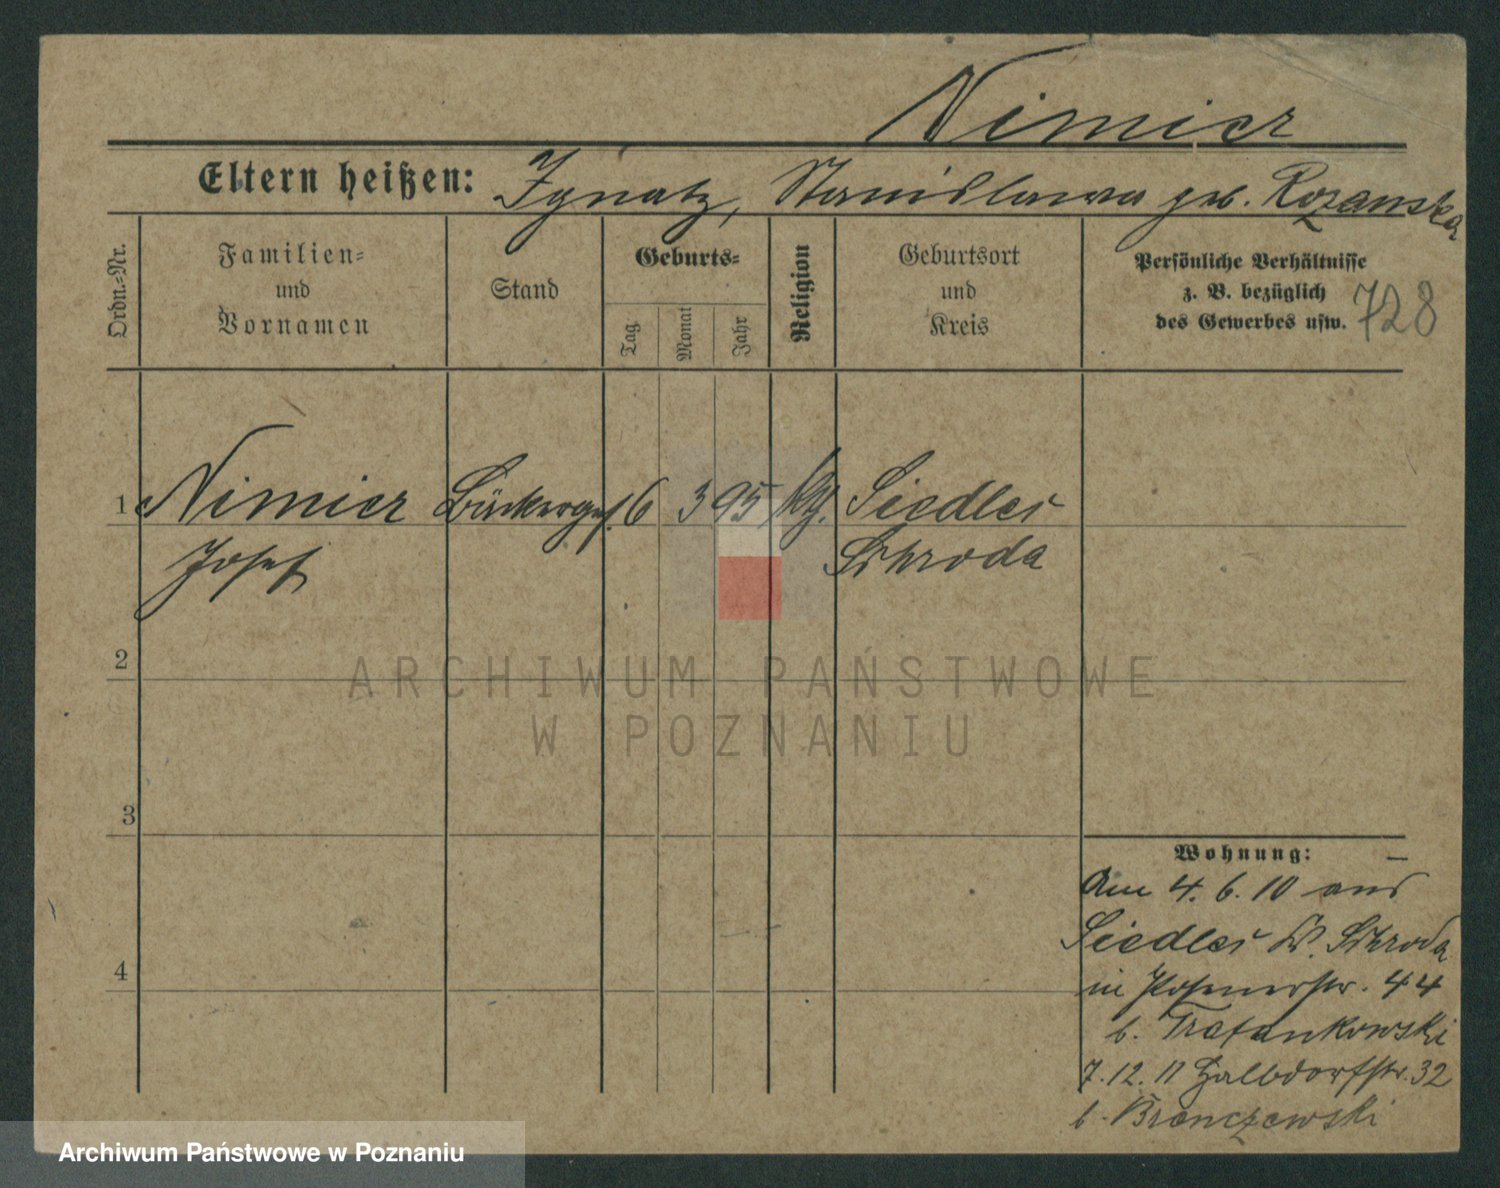 Nimier
Eltern heißen: Ignatz, Stanislawa geb. Rozanska
Ordn.-Nr.
Familien-
und
Vornamen
Stand
Geburts-
Tag
Monat
Jahr
Religion
Geburtsort
und
Kreis
Persönliche Verhältnisse
z. B. bezüglich
des Gewerbes usw.
728
1 Nimier Bäckerges. 6 3 95 kth. Siedlec
Josef Schroda
2
3
4
ARCHIWUM PAŃSTWOWE
W POZNANIU
Wohnung:
Am 4. 6. 10 aus
Siedlec Kr. Schroda
in Posenerstr. 44
b. Tratankowski
7. 12. 11 Halbdorfstr. 32
b. Bronczewski
Archiwum Państwowe w Poznaniu